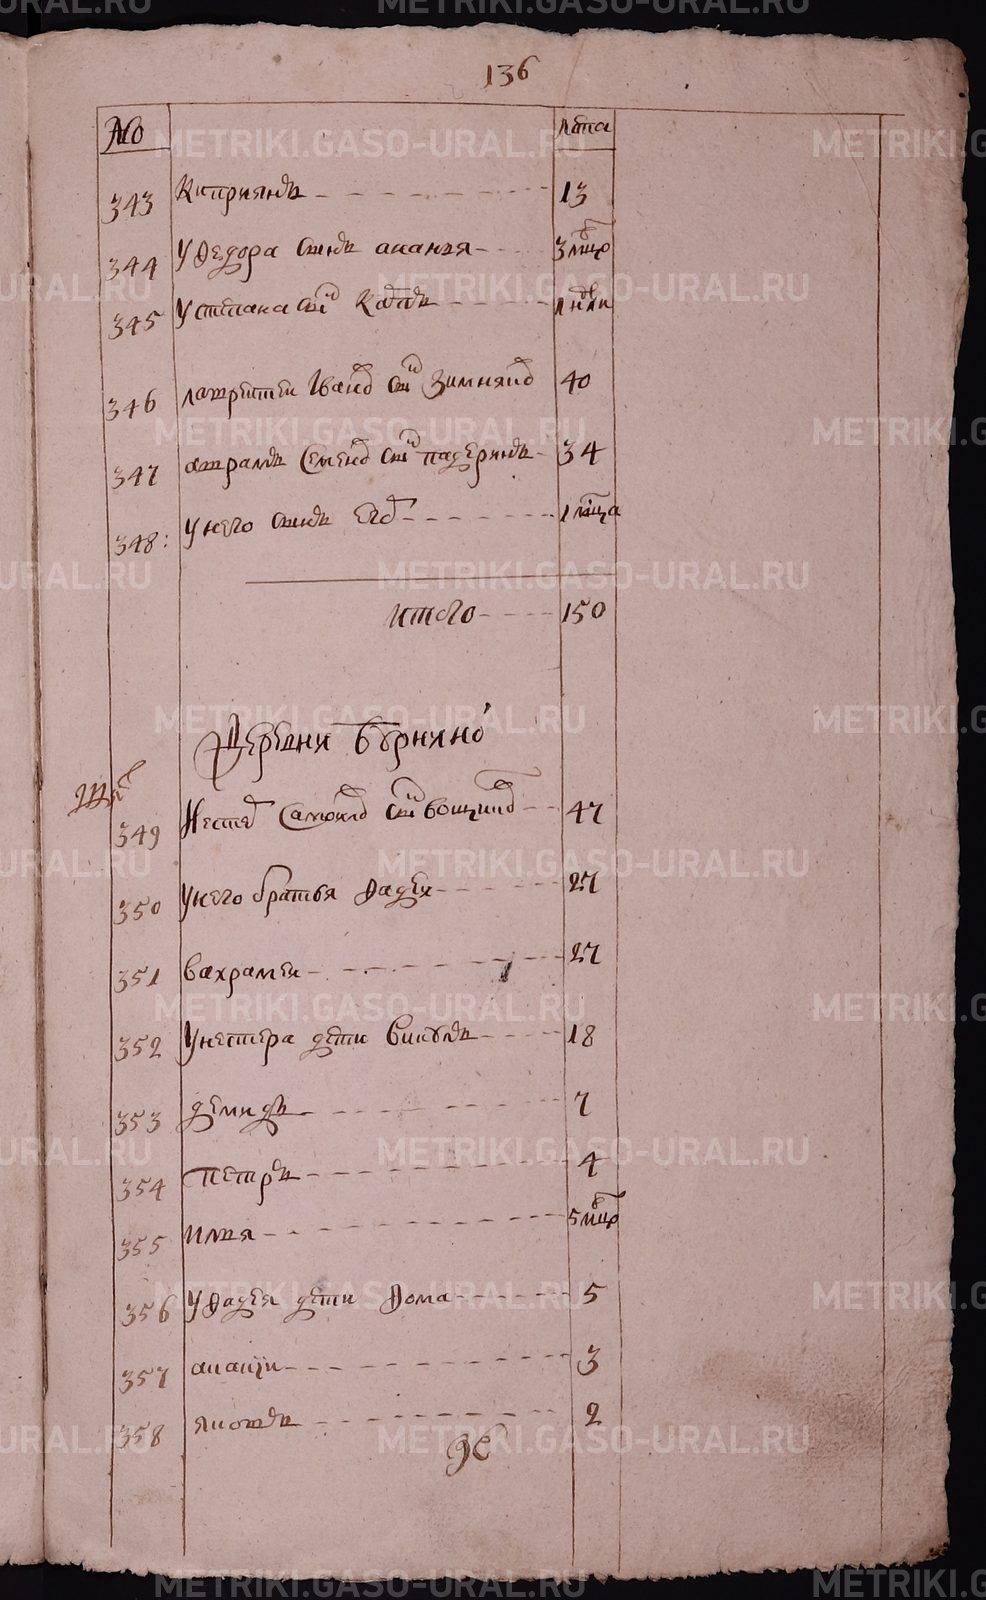 136
No лѣта
343 Киприянъ 13
344 У Федора сынъ ананья 3 мцвъ
345 У степана снъ 1 нѣли
346 лаврентеи Іванов снъ Зимняков 40
347 аврамъ Семенов снъ падеринъ 34
348: У него сынъ Егор 1 мсца
итого 150
Деревни
349 Нестер Самоилов снъ вощиков 47
350 У него братья Фадеи 27
351 вахрамеи 27
352 У нестера дети викулъ 18
353 демидъ 7
354 петръ 4
355 илья 5 мцвъ
356 У Фадея дети Фома 5
357 ананіи 3
358 яковъ 2
METRIKI.GASO-URAL.RU